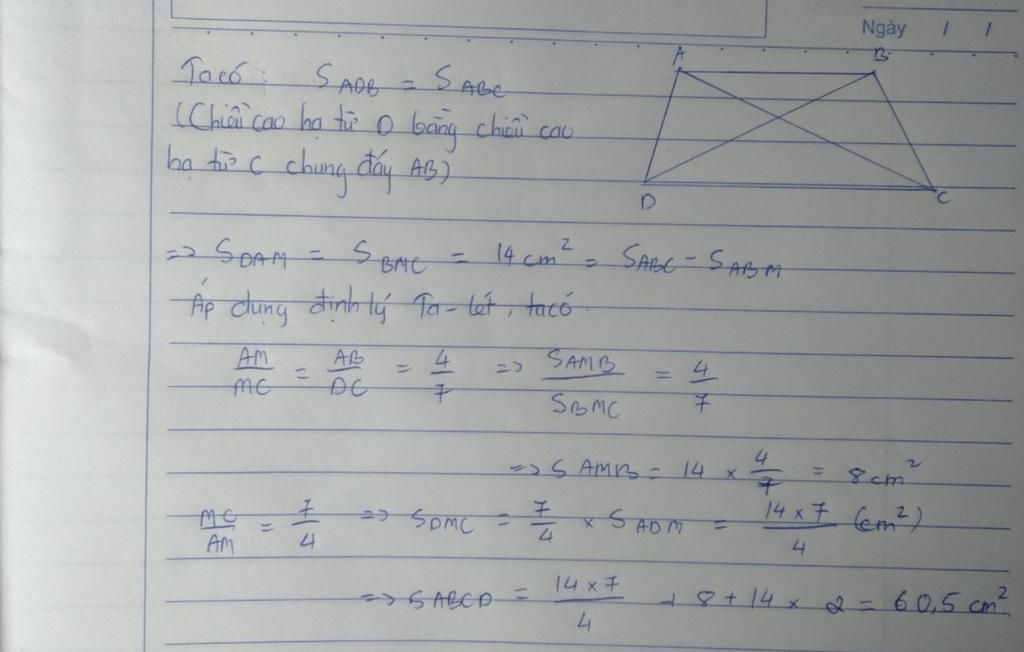 Ngày / /
A B
Ta có: S ADB = S ABC
(Chiều cao hạ từ D bằng chiều cao
hạ từ C chung đáy AB)
D C
=> S DAM = S BMC = 14 cm² = S ABC - S ABM
Áp dụng định lý Ta-lét, ta có
AM/MC = AB/DC = 4/7 => S AMB/S BMC = 4/7
=> S AMB = 14 × 4/7 = 8 cm²
MC/AM = 7/4 => S DMC = 7/4 × S ADM = 14 × 7/4 (cm²)
=> S ABCD = 14 × 7/4 + 8 + 14 × 2 = 60,5 cm²